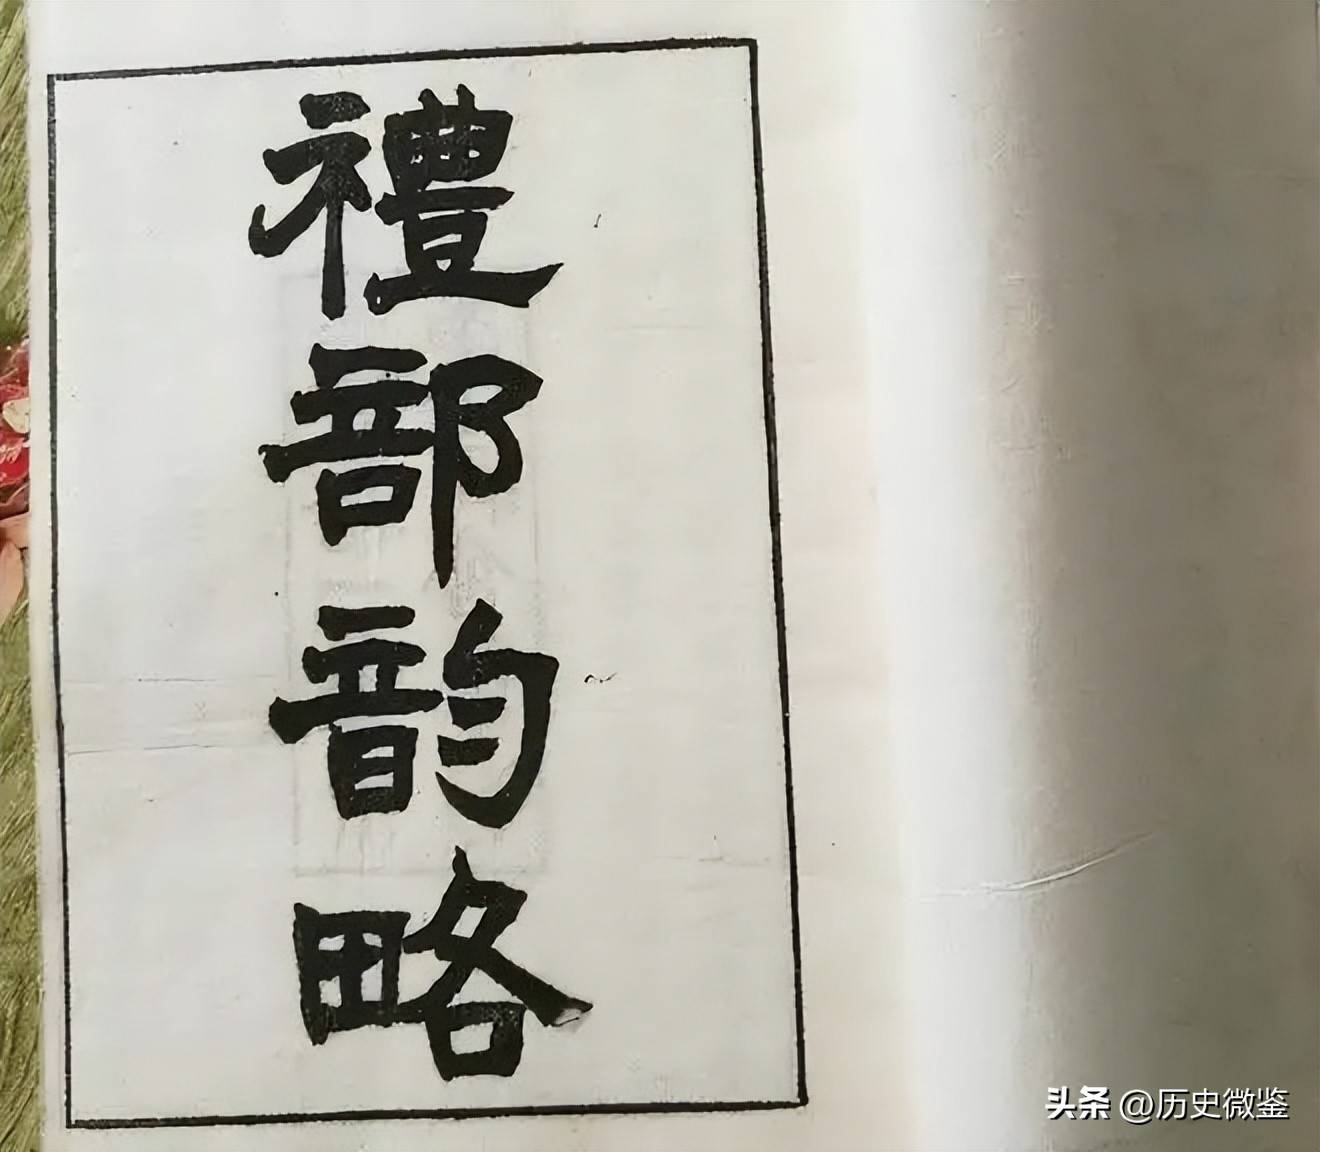 禮部韵略
头条 @历史微鉴